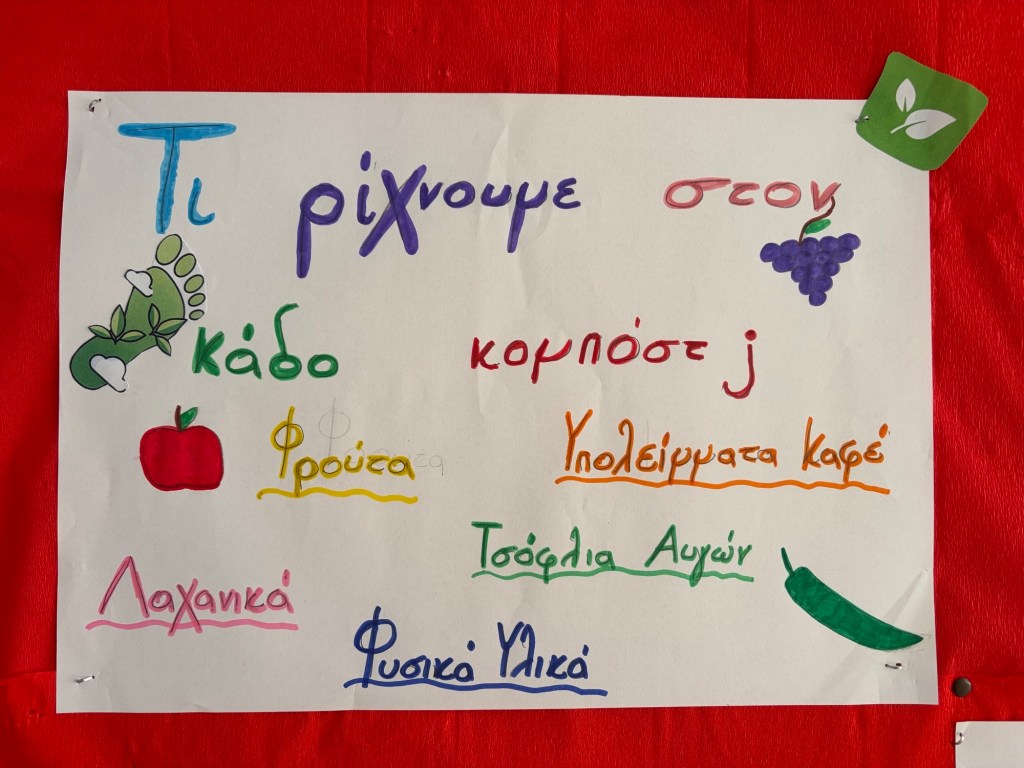 Τι ρίχνουμε στον
κάδο κομπόστ ;
Φρούτα
Υπολείμματα Καφέ
Τσόφλια Αυγών
Λαχανικά
Φυσικά Υλικά